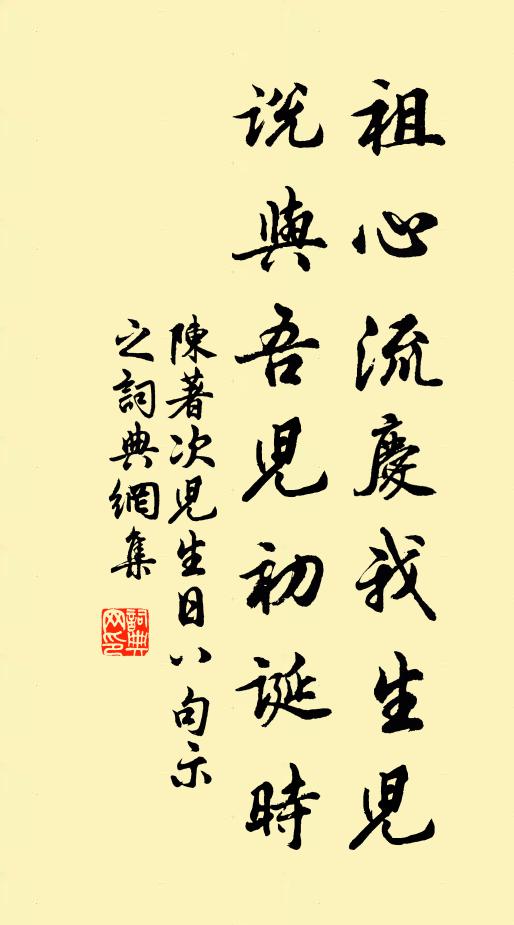 祖心流慶我生児
說與吾児初誕時
陳著次児生日八句示
之詞典網集
詞典网印